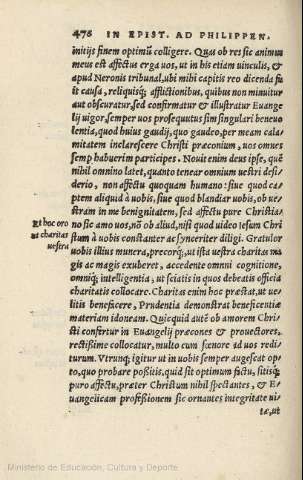 476 IN EPIST. AD PHILIPPEN.
initijs finem optimũ colligere. Quas ob res sic animus
meus est affectus erga uos, ut in his etiam uinculis, &
apud Neronis tribunal, ubi mihi capitis reo dicenda fu
it causa, reliquisq; afflictionibus, quibus non minuitur
aut obscuratur, sed confirmatur & illustratur Euange
lij uigor, semper uos prosequutus sim singulari beneuo
lentia, quod huius gaudij, quo gaudeo, per meam cala-
mitatem inclarescere Christi præconium, uos omnes
semp habuerim participes. Nouit enim deus ipse, quẽ
nihil omnino latet, quanto tenear omnium uestri desi-
derio, non affectu quopiam humano: siue quod ca-
ptem aliquid à uobis, siue quod blandiar uobis, ob ue-
stram in me benignitatem, sed affectu pure Christia-
Et hoc oro
ut charitas
uestra
no sic amo uos, nõ ob aliud, nisi quod uideo iesum Chri
stum à uobis constanter ac synceriter diligi. Gratulor
uobis illius munera, precorq;, ut ista uestra charitas ma
gis ac magis exuberet, accedente omni cognitione,
omniq; intelligentia, ut sciatis in quos debeatis officia
charitatis collocare. Charitas enim hoc præstat, ut ue-
litis beneficere, Prudentia demonstrat beneficentiæ
materiam idoneam. Quicquid autẽ ob amorem Chri-
sti confertur in Euangelij præcones & prouectores,
rectissime collocatur, multo cum fœnore ad uos redi-
turum. Vtrunq; igitur ut in uobis semper augescat op-
to, quo probare possitis, quid sit optimum factu, sitisq;
puro affectu, præter Christum nihil spectantes, & E-
uangelicam professionem sic ornantes integritate ui-
tæ, ut
Ministerio de Educación, Cultura y Deporte